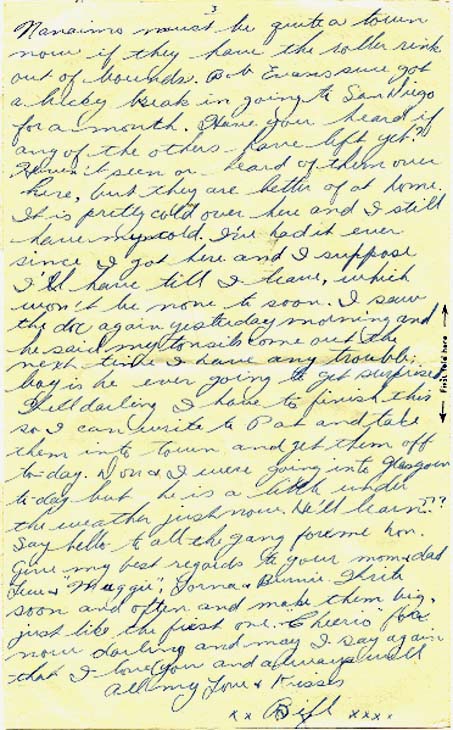 3
Nanaimo must be quite a town
now if they have the roller rink
out of bounds. Bob Evans sure got
a lucky break in going to San Diego
for a month. Have you heard if
any of the others have left yet?
Haven't seen or heard of them over
here, but they are better of at home.
It is pretty cold over here and I still
have my cold. I've had it ever
since I got here and I suppose
I'll have till I leave, which
won't be none to soon. I saw
the doc again yesterday morning and
he said my tonsils come out the
next time I have any trouble;
boy is he ever going to get surprised
Well darling I have to finish this
so I can write to Pat and take
them into town and get them off
to-day. Don & I were going into Glasgow
to-day but he is a little under
the weather just now. He'll learn??
Say hello to all the gang for me hon.
Give my best regards to your mom & dad
"Maggie", Lorna & Bernie. Write
soon and often and make them big,
just like the first one. "Cheerio" for
now darling and may I say again
that I love you and always will
All my Love & Kisses
xx Bill xxxx
First fold here